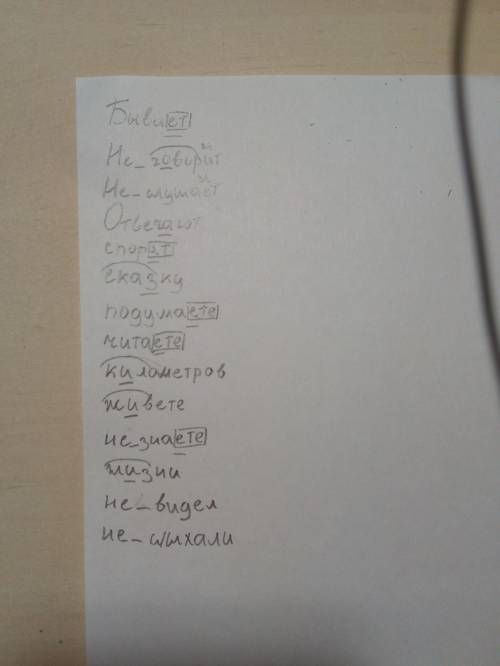 Бывает
Не_говорит
Не_слушает
Отвечают
спорят
сказку
подумаете
читаете
километров
живете
не_знаете
жизни
не_видел
не_слыхали